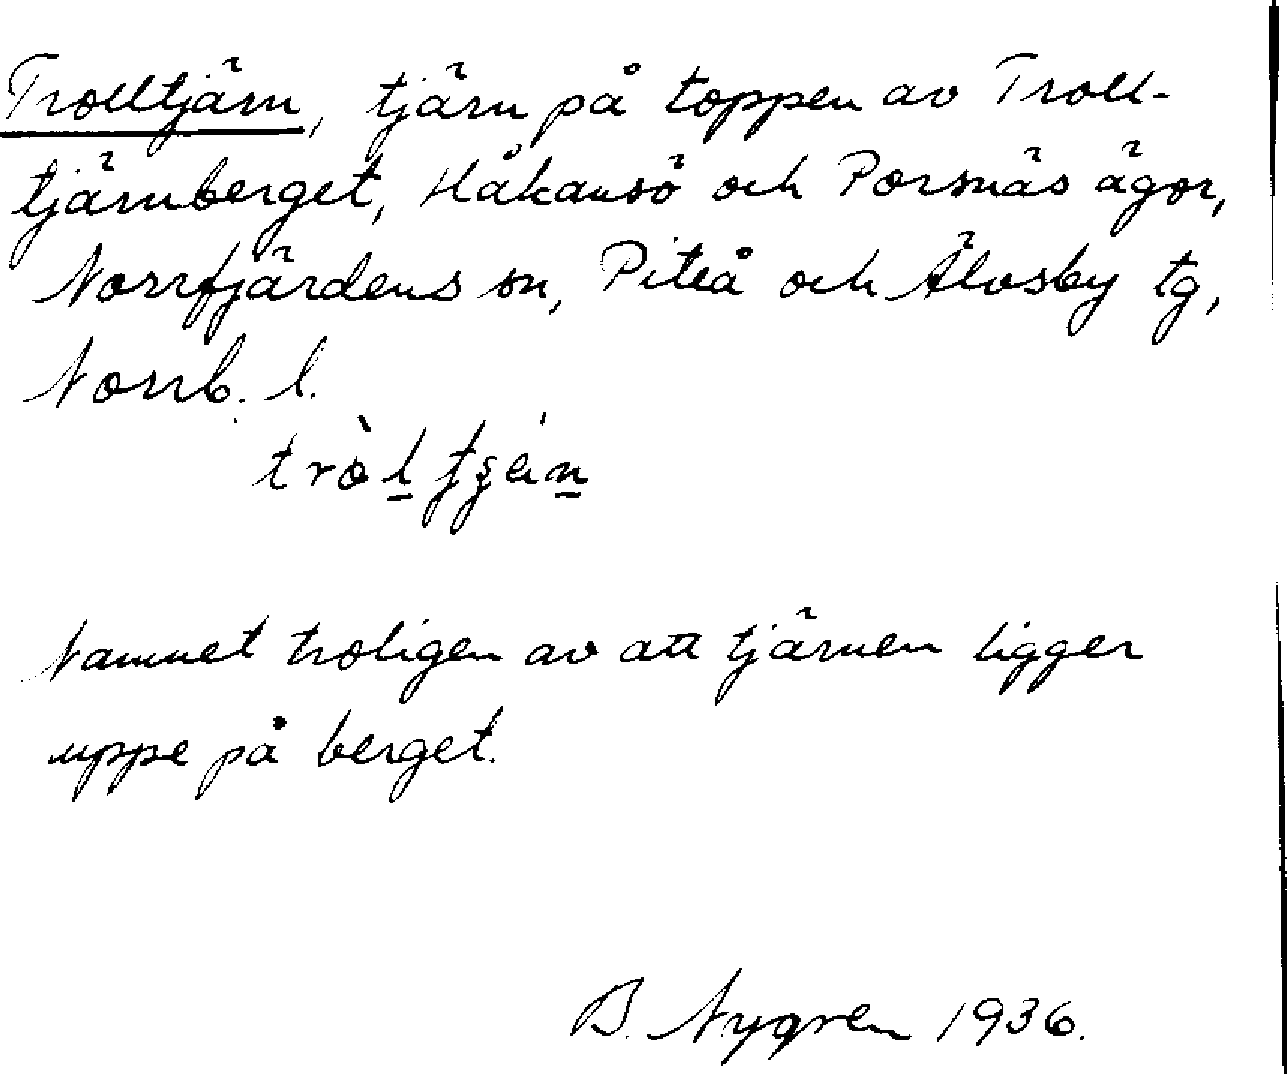 Trolltjärn, tjärn på toppen av Troll-
tjärnberget, Håkansö och Porsnäs ägor,
Norrfjärdens sn, Piteå och Älvsby tg,
Norrb. l.
Namnet troligen av att tjärnen ligger
uppe på berget.
B. Nygren 1936.